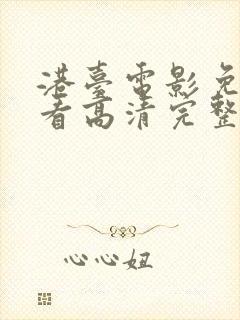 港臺電影免
看高清完整
心心妞